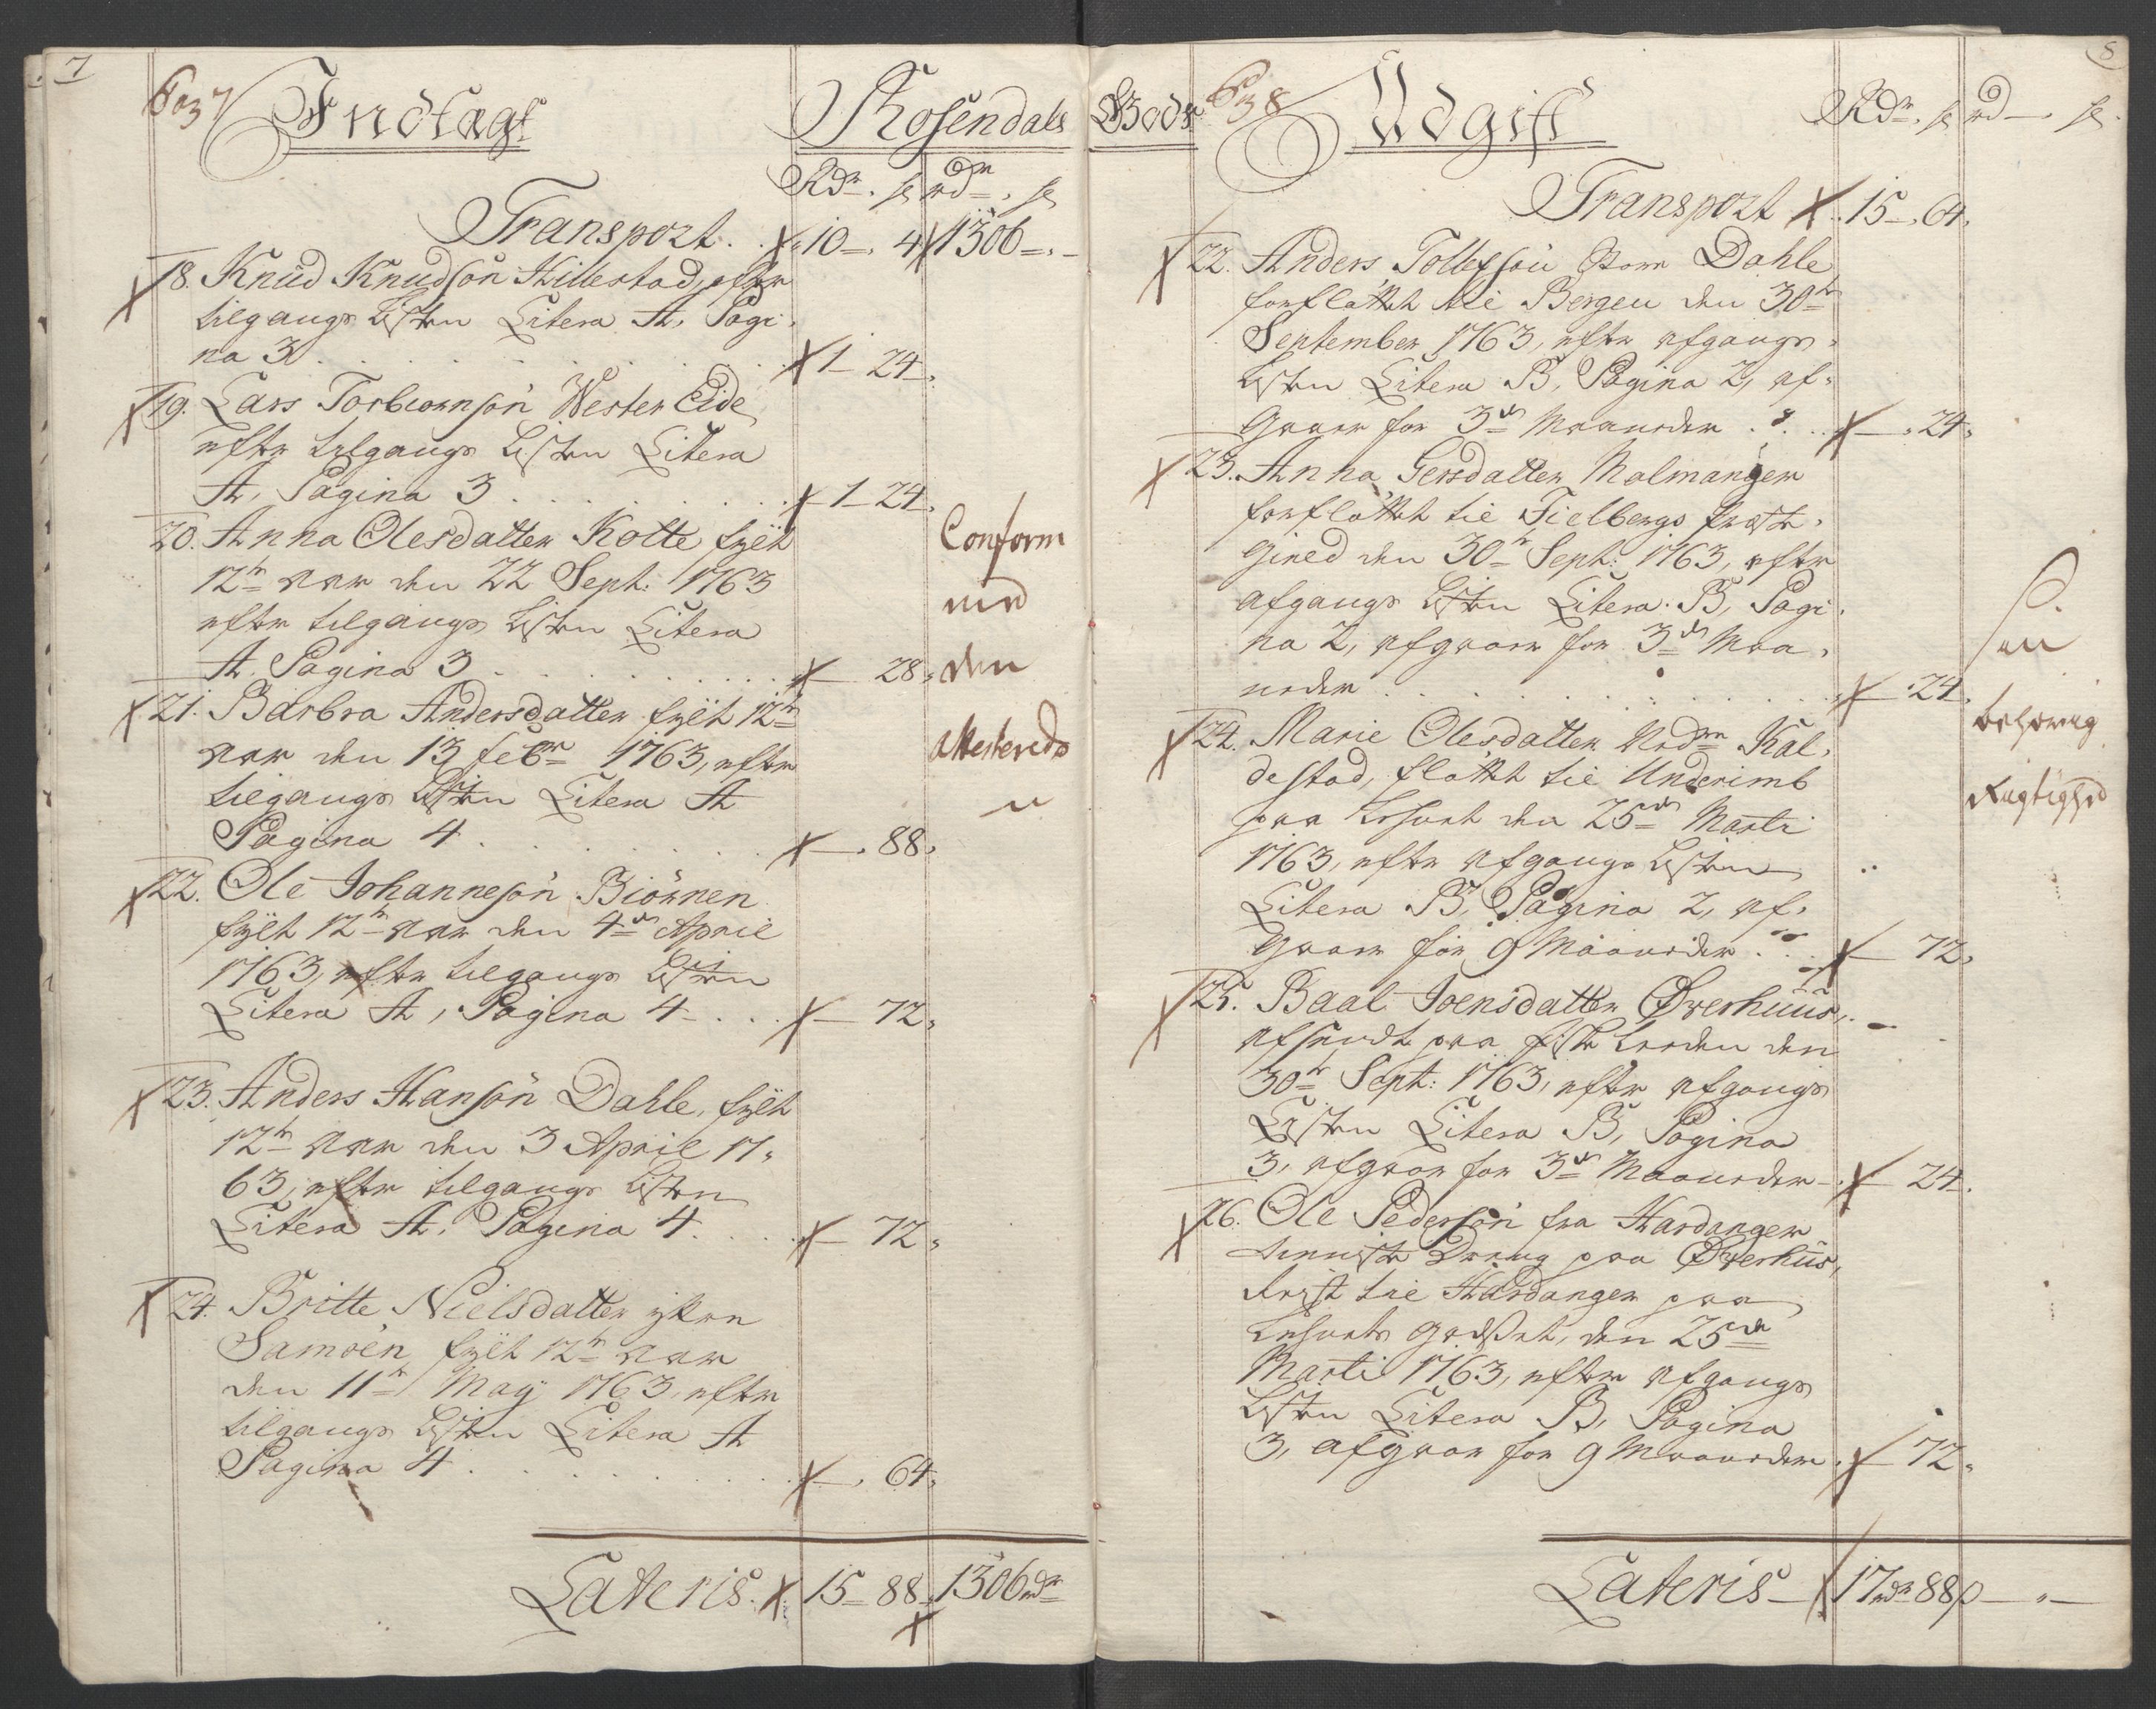 7
637
Indtægt
Rosendals
Rdr. s rdr. s
Transport . . 10 - 4 1306 - -
18. Knud Knudsøn Hillestad, efter
tilgangs Listen Litera A, Pagi-
na 3 . . . . . 1 - 24
19. Lars Torbiørnsøn Wester Eide
efter tilgangs Listen Litera
A, Pagina 3 . . . . . 1 - 24
20. Anna Olesdatter Kolte fylt
12te Aar den 22 Sept: 1763
efter tilgangs Listen Litera
A, Pagina 3 . . . . . - 28
21. Barbra Andersdatter fylt 12te
Aar den 13 febr 1763, efter
tilgangs Listen Litera A
Pagina 4 . . . . . - 88
22. Ole Johannesøn Biørnen
fylt 12te Aar den 4de April
1763, efter tilgangs Listen
Litera A, Pagina 4 . . . - 72
23. Anders Hansøn Dahle, fylt
12te Aar den 3 April 17-
63, efter tilgangs Listen
Litera A, Pagina 4 . . . - 72
24. Britte Nielsdatter
Samoen fylt 12te Aar
den 11te May 1763, efter
tilgangs Listen Litera A
Pagina 4 . . . . . - 64
Lateris. 15 - 88 - 1306 rdr
Conform
med
den
Attesterede
8
638
Gods
Udgift
Rdr. s rd - s
Transport 15 - 64
22. Anders Tollefsøn Dahle
forfløttet til Bergen den 30te
September 1763, efter afgangs-
Listen Litera B, Pagina 2, af-
gaar for 3de Maaneder . . . - 24
23. Anna Gersdatter Malmanger
forfløttet til Fielbergs Præste-
gield den 30te Sept: 1763, efter
afgangs Listen Litera B, Pagi-
na 2, afgaar for 3de Maa-
neder . . . . . - 24
24. Marie Olesdatter Kal-
destad, fløttet til Underimb
paa Lehnet den 25de Marti
1763, efter afgangs Listen
Litera B, Pagina 2, af-
gaar for 9 Maaneder . . . - 72
25. Baal Joensdatter Øverhuus,
den
30te Sept: 1763, efter afgangs
Listen Litera B, Pagina
3, afgaar for 3de Maaneder - 24
26. Ole Pedersøn fra Hardanger
tienniste Dreng paa Øverhuus,
Reist til Hardanger paa
Lehnets Godset, den 25de
Marti 1763, efter afgangs
Listen Litera B, Pagina
3, afgaar for 9 Maaneder. - 72
Lateris - 17 rdr 88 s - -
behørig
Rigtighed